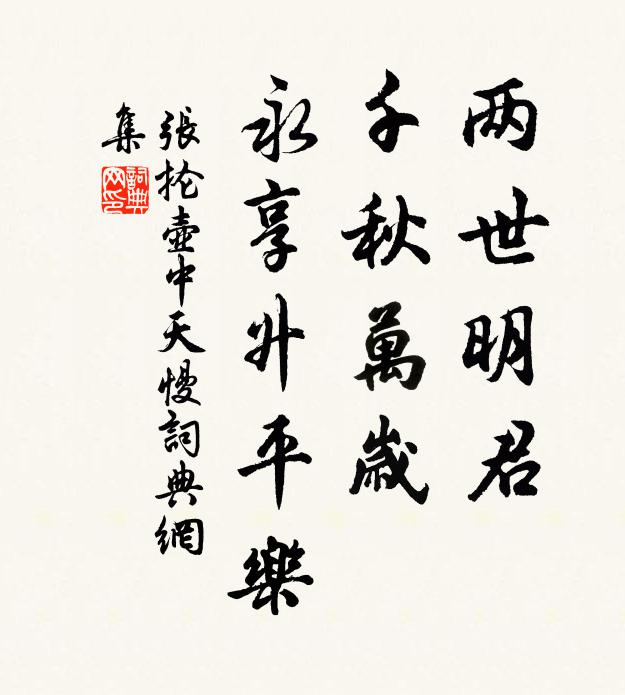 两世明君
千秋萬歲
永享升平樂
張抡壺中天慢詞典網
集
詞典
网印